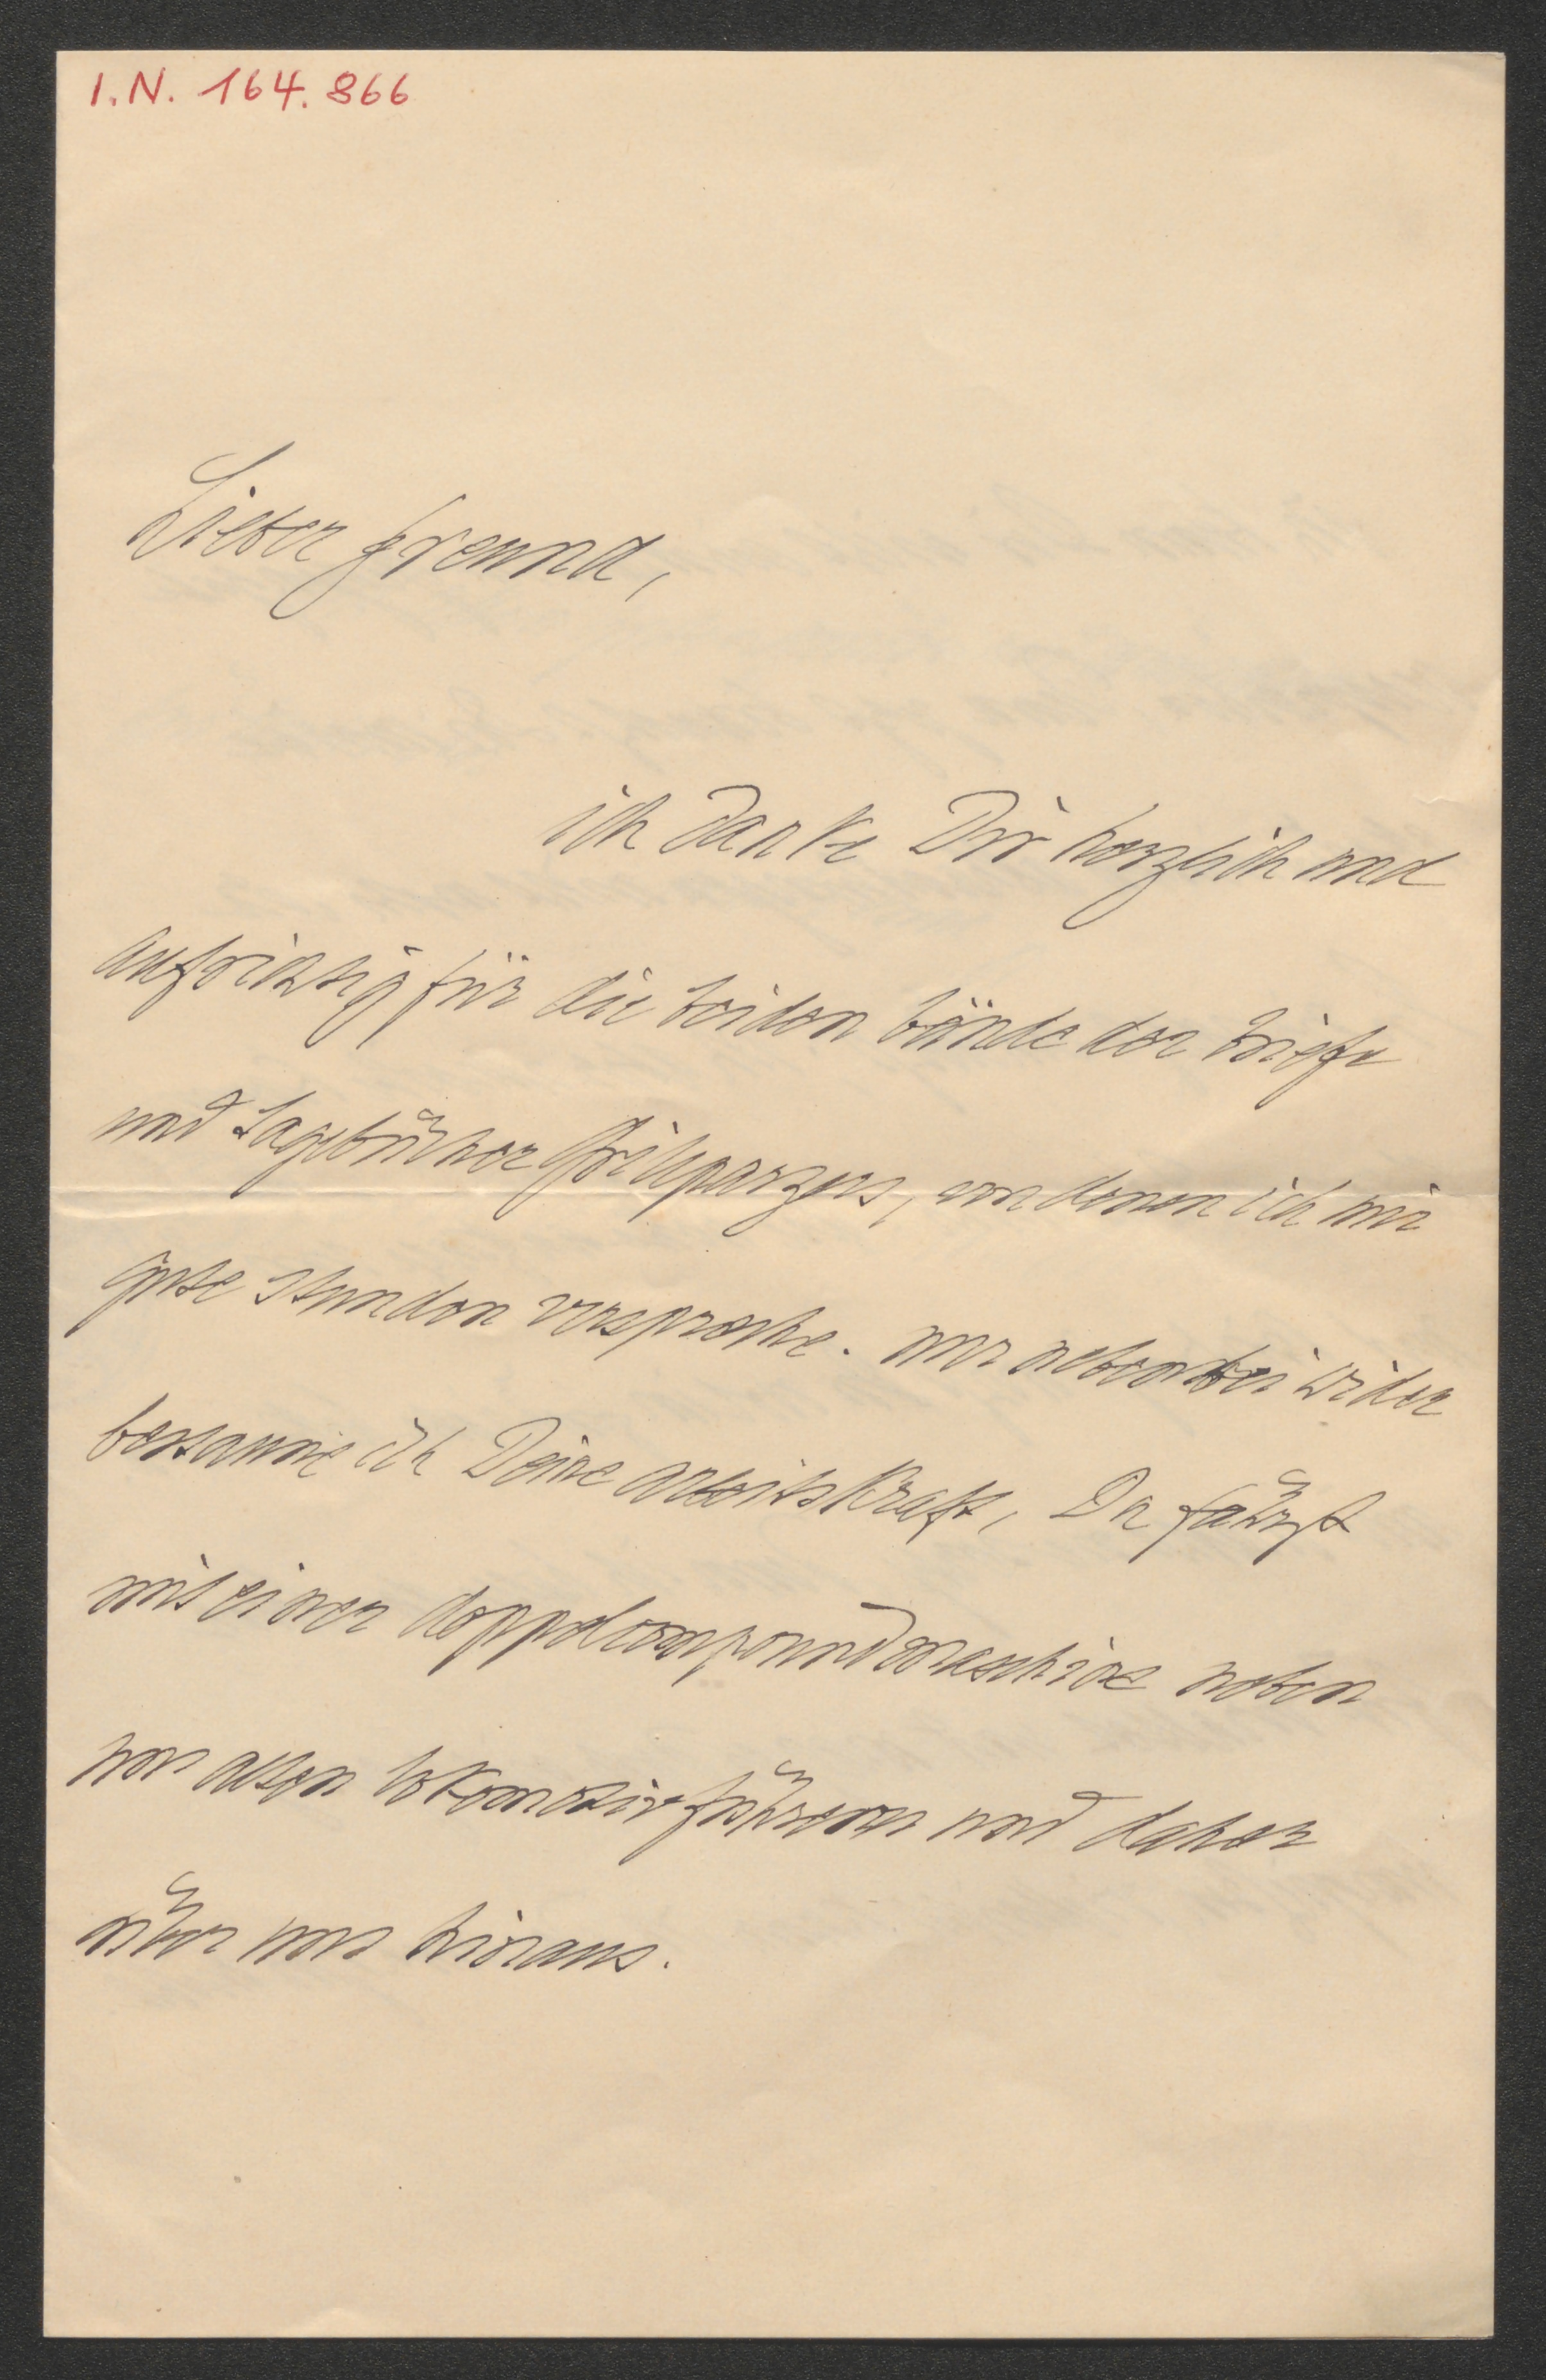 I.N. 164.866
Lieber freund,
ich danke Dir herzlich und
aufrichtig für die beiden bände der briefe
und Tagebücher Grillparzers, von denen ich mir
gute stunden verspreche. nur nebenbei wider
bestaune ich Deine arbeitskraft, Du fährst
mit einer doppelcompoundmaschine neben
uns alten lokomotivführern und daher
über uns hinaus.